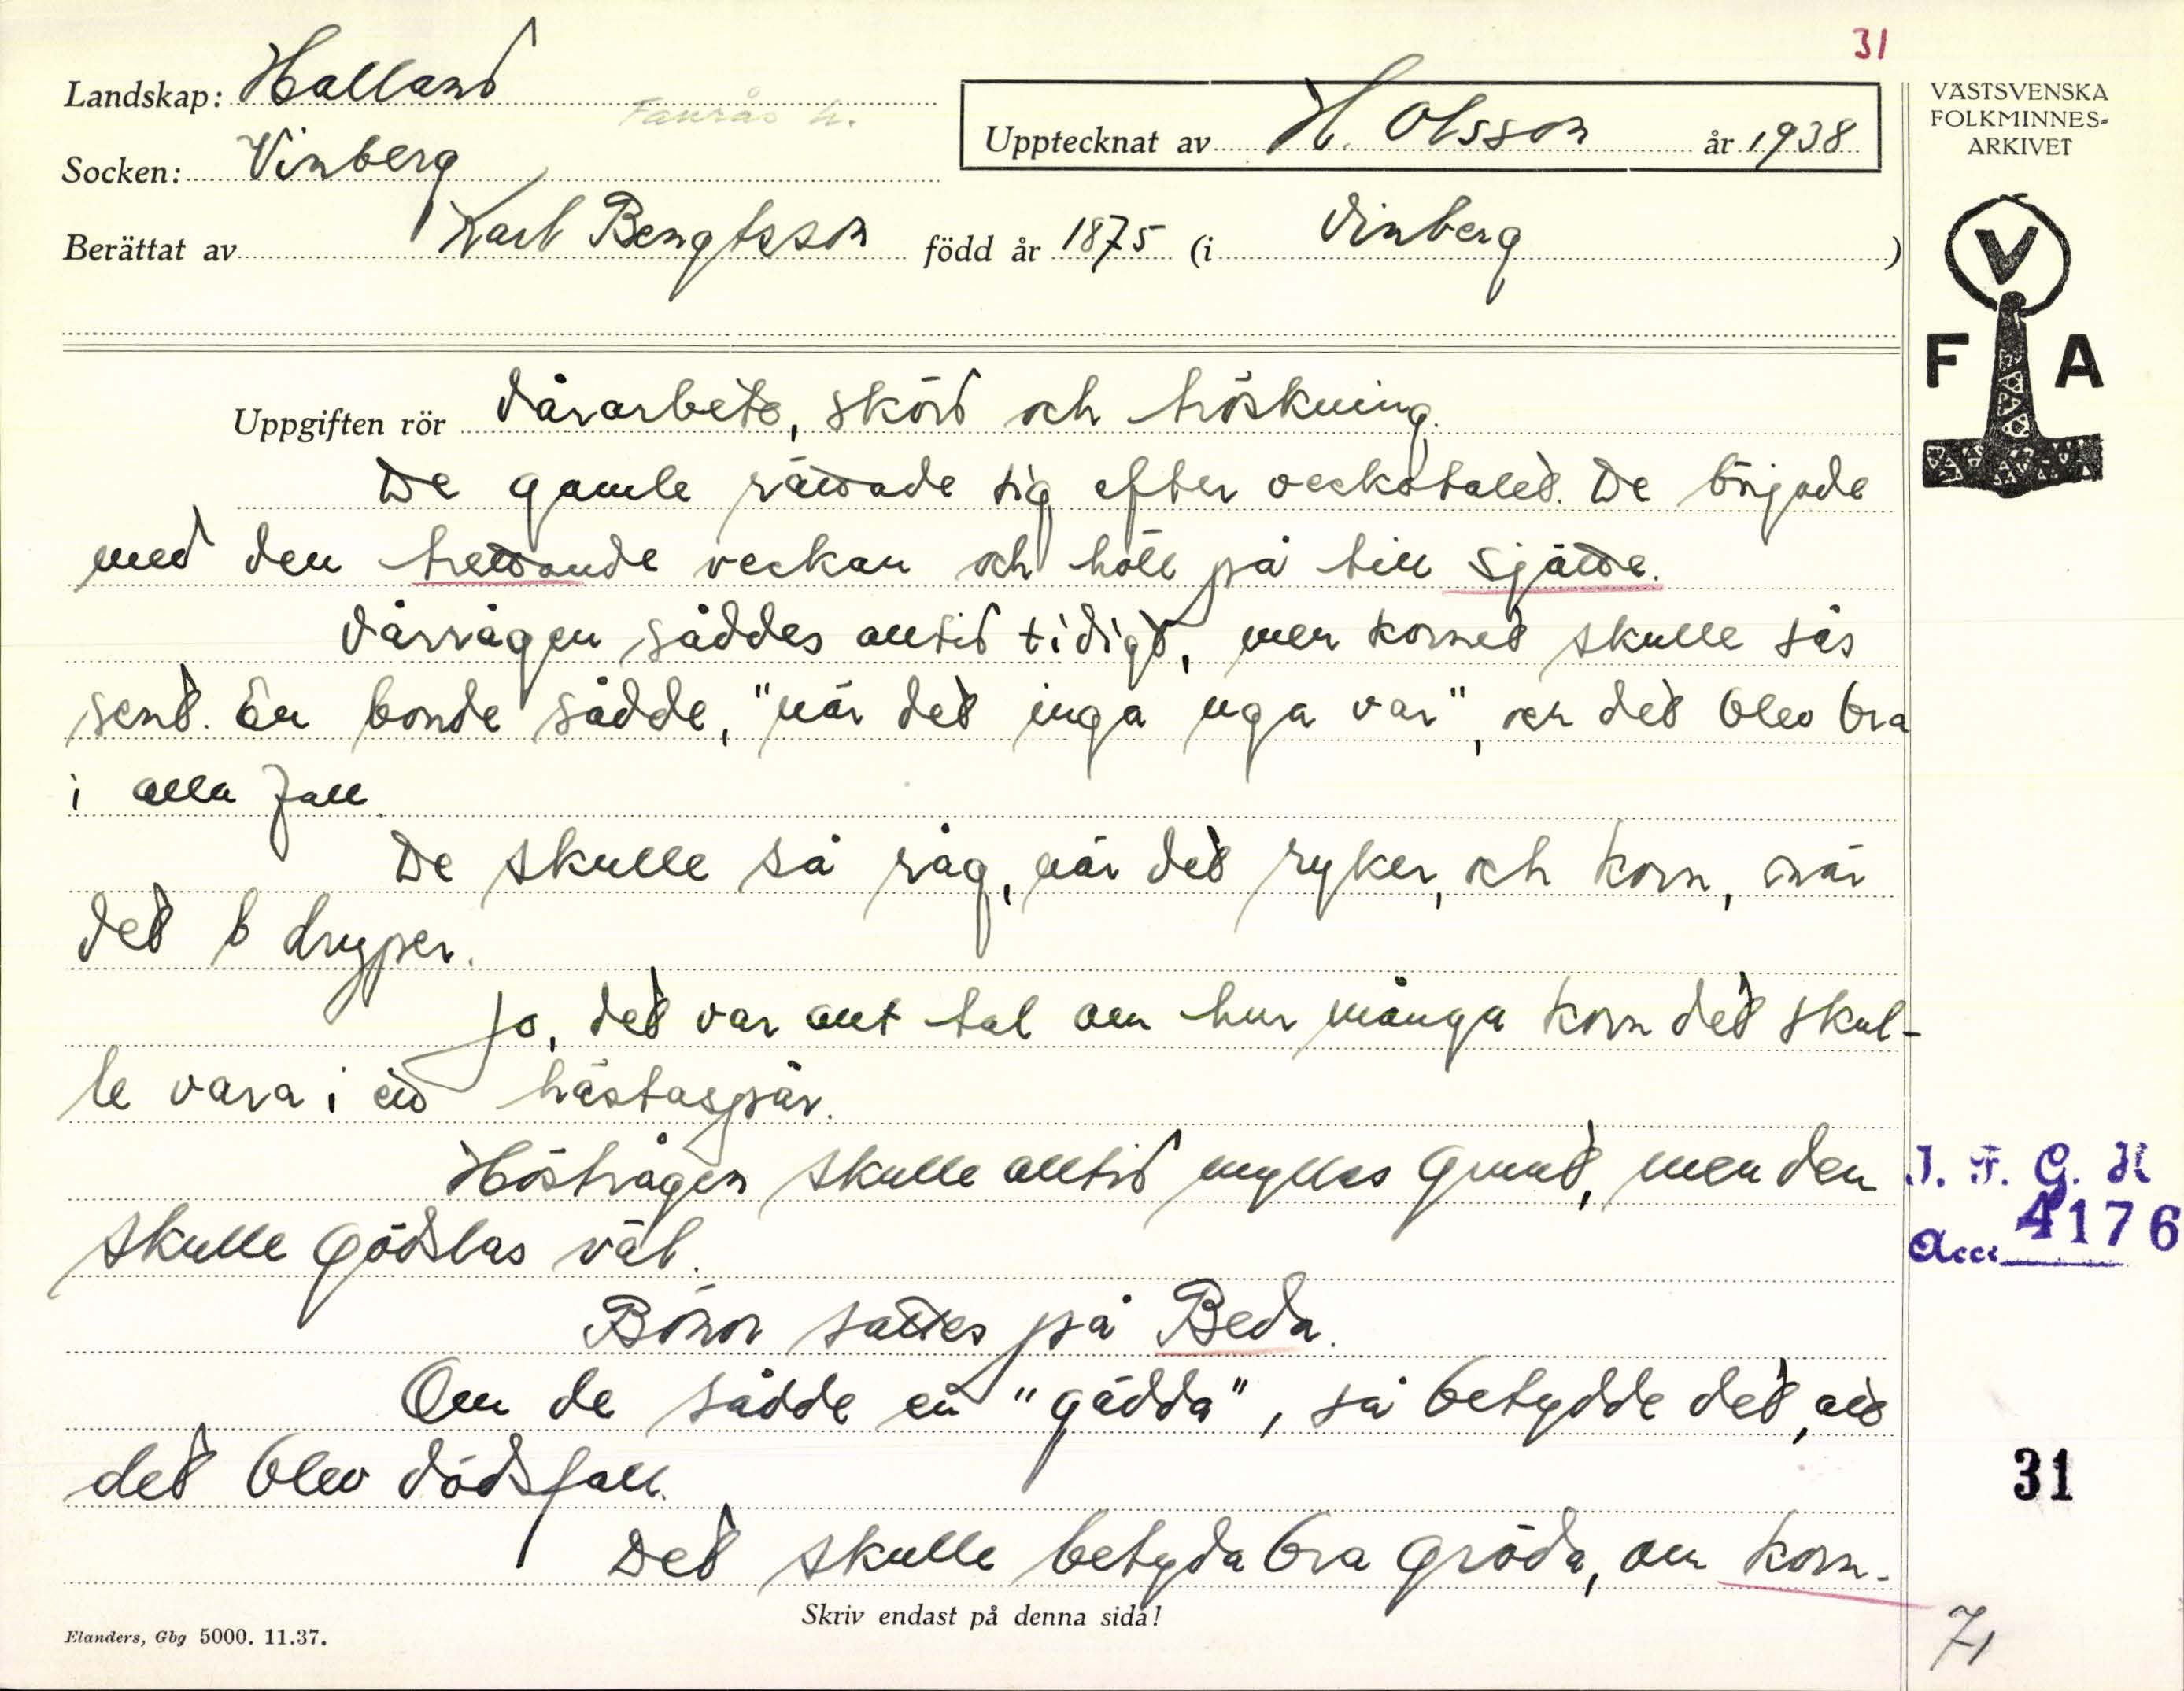 31
Landskap: Halland
Faurås h.
Socken: Vinberg
Upptecknat av H. Olsson år 1938
Berättat av Karl Bengtsson född år 1875 (i Vinberg)
VÄSTSVENSKA
FOLKMINNES-
ARKIVET
V
F A
Uppgiften rör Vårarbete, skörd och tröskning.
De gamle rättade sig efter veckotalet. De började
med den trettonde veckan och höll på till sjätte.
Vårrågen såddes alltid tidigt, men kornet skulle sås
sent. En bonde sådde, "när det inga uga var", och det blev bra
i alla fall.
De skulle så råg, när det ryker, och korn, när
det b dryper.
Jo, det var ant tal om hur många korn det skul-
le vara i ett hästaspår.
Höstrågen skulle alltid myllas grunt, men den
skulle gödslas väl.
Bönor sattes på Beda.
Om de sådde en "gädda", så betydde det, att
det blev dödsfall.
Det skulle betyda bra gröda, om korn-
Skriv endast på denna sida!
Elanders, Gbg 5000. 11.37.
I. F. G. H
Acc. 4176
31
71